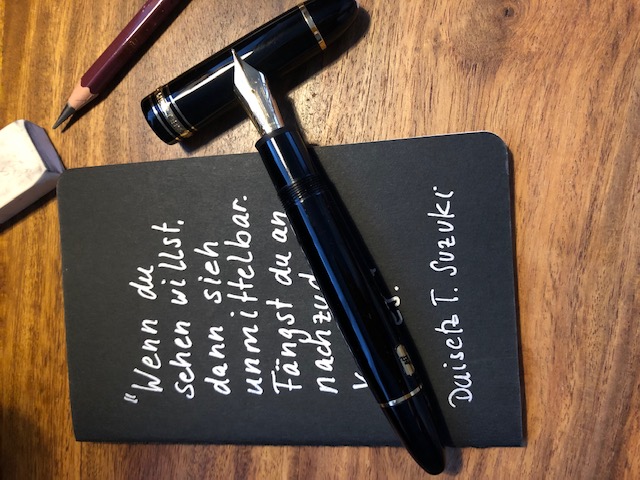 "Wenn du
sehen willst,
dann sieh
unmittelbar.
Fängst du an
Daisetz T. Suzuki